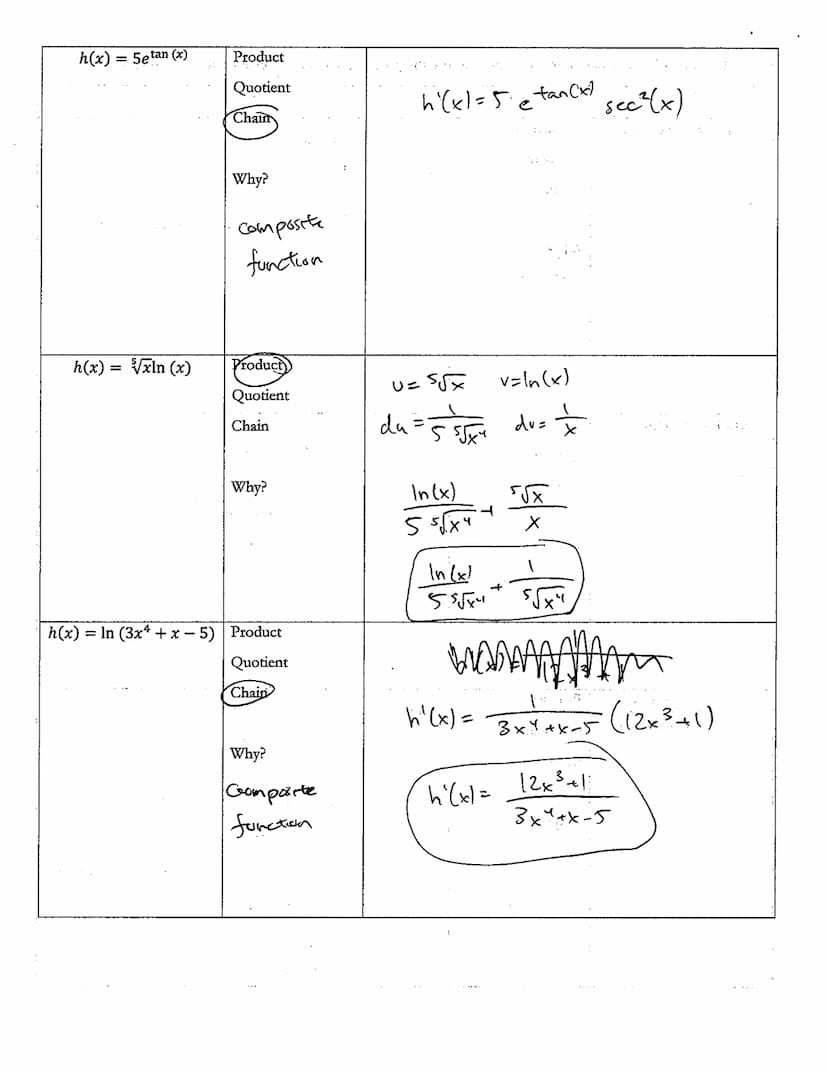 h(x) = 5e^tan (x)
Product
Quotient
Chain
Why?
composite
function
h'(x) = 5 · e^tan(x) sec²(x)
h(x) = ⁵√x ln (x)
Product
Quotient
Chain
Why?
u = ⁵√x v = ln(x)
du = 1/(5 ⁵√x⁴) dv = 1/x
ln(x)/(5 ⁵√x⁴) + ⁵√x/x
ln(x)/(5 ⁵√x⁴) + 1/⁵√x⁴
h(x) = ln (3x⁴ + x − 5)
Product
Quotient
Chain
Why?
Composite
function
h'(x) = 1/(3x⁴+x-5) (12x³+1)
h'(x) = (12x³+1)/(3x⁴+x-5)